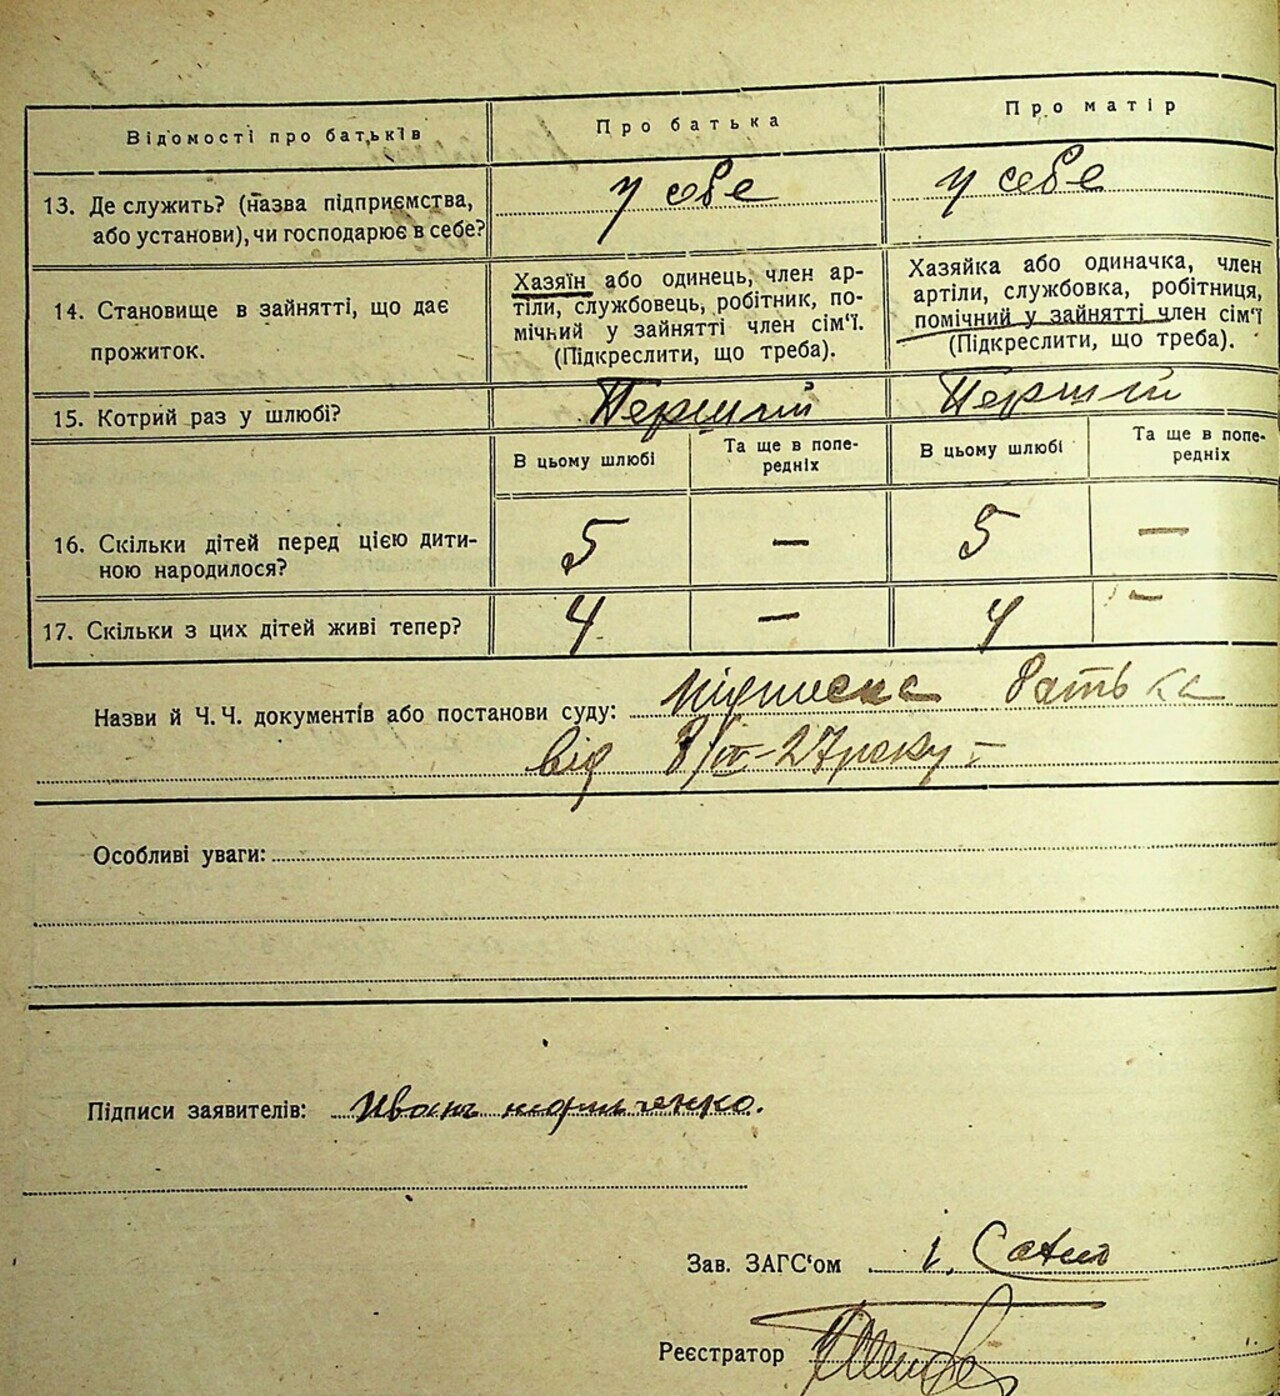 Відомості про батьків
Про батька
Про матір
13. Де служить? (назва підприємства,
або установи), чи господарює в себе?
у себе
у себе
14. Становище в зайнятті, що дає
прожиток.
Хазяїн або одинець, член ар-
тіли, службовець, робітник, по-
мічний у зайнятті член сім'ї.
(Підкреслити, що треба).
Хазяйка або одиначка, член
артіли, службовка, робітниця,
помічний у зайнятті член сім'ї
(Підкреслити, що треба).
15. Котрий раз у шлюбі?
Перший
Перший
В цьому шлюбі
Та ще в попе-
редніх
В цьому шлюбі
Та ще в попе-
редніх
16. Скільки дітей перед цією дити-
ною народилося?
5
—
5
—
17. Скільки з цих дітей живі тепер?
4
—
4
—
Назви й Ч.Ч. документів або постанови суду: підписка батька
від 27 року
Особливі уваги:
Підписи заявителів: Иванъ
Зав. ЗАГС'ом і.
Реєстратор